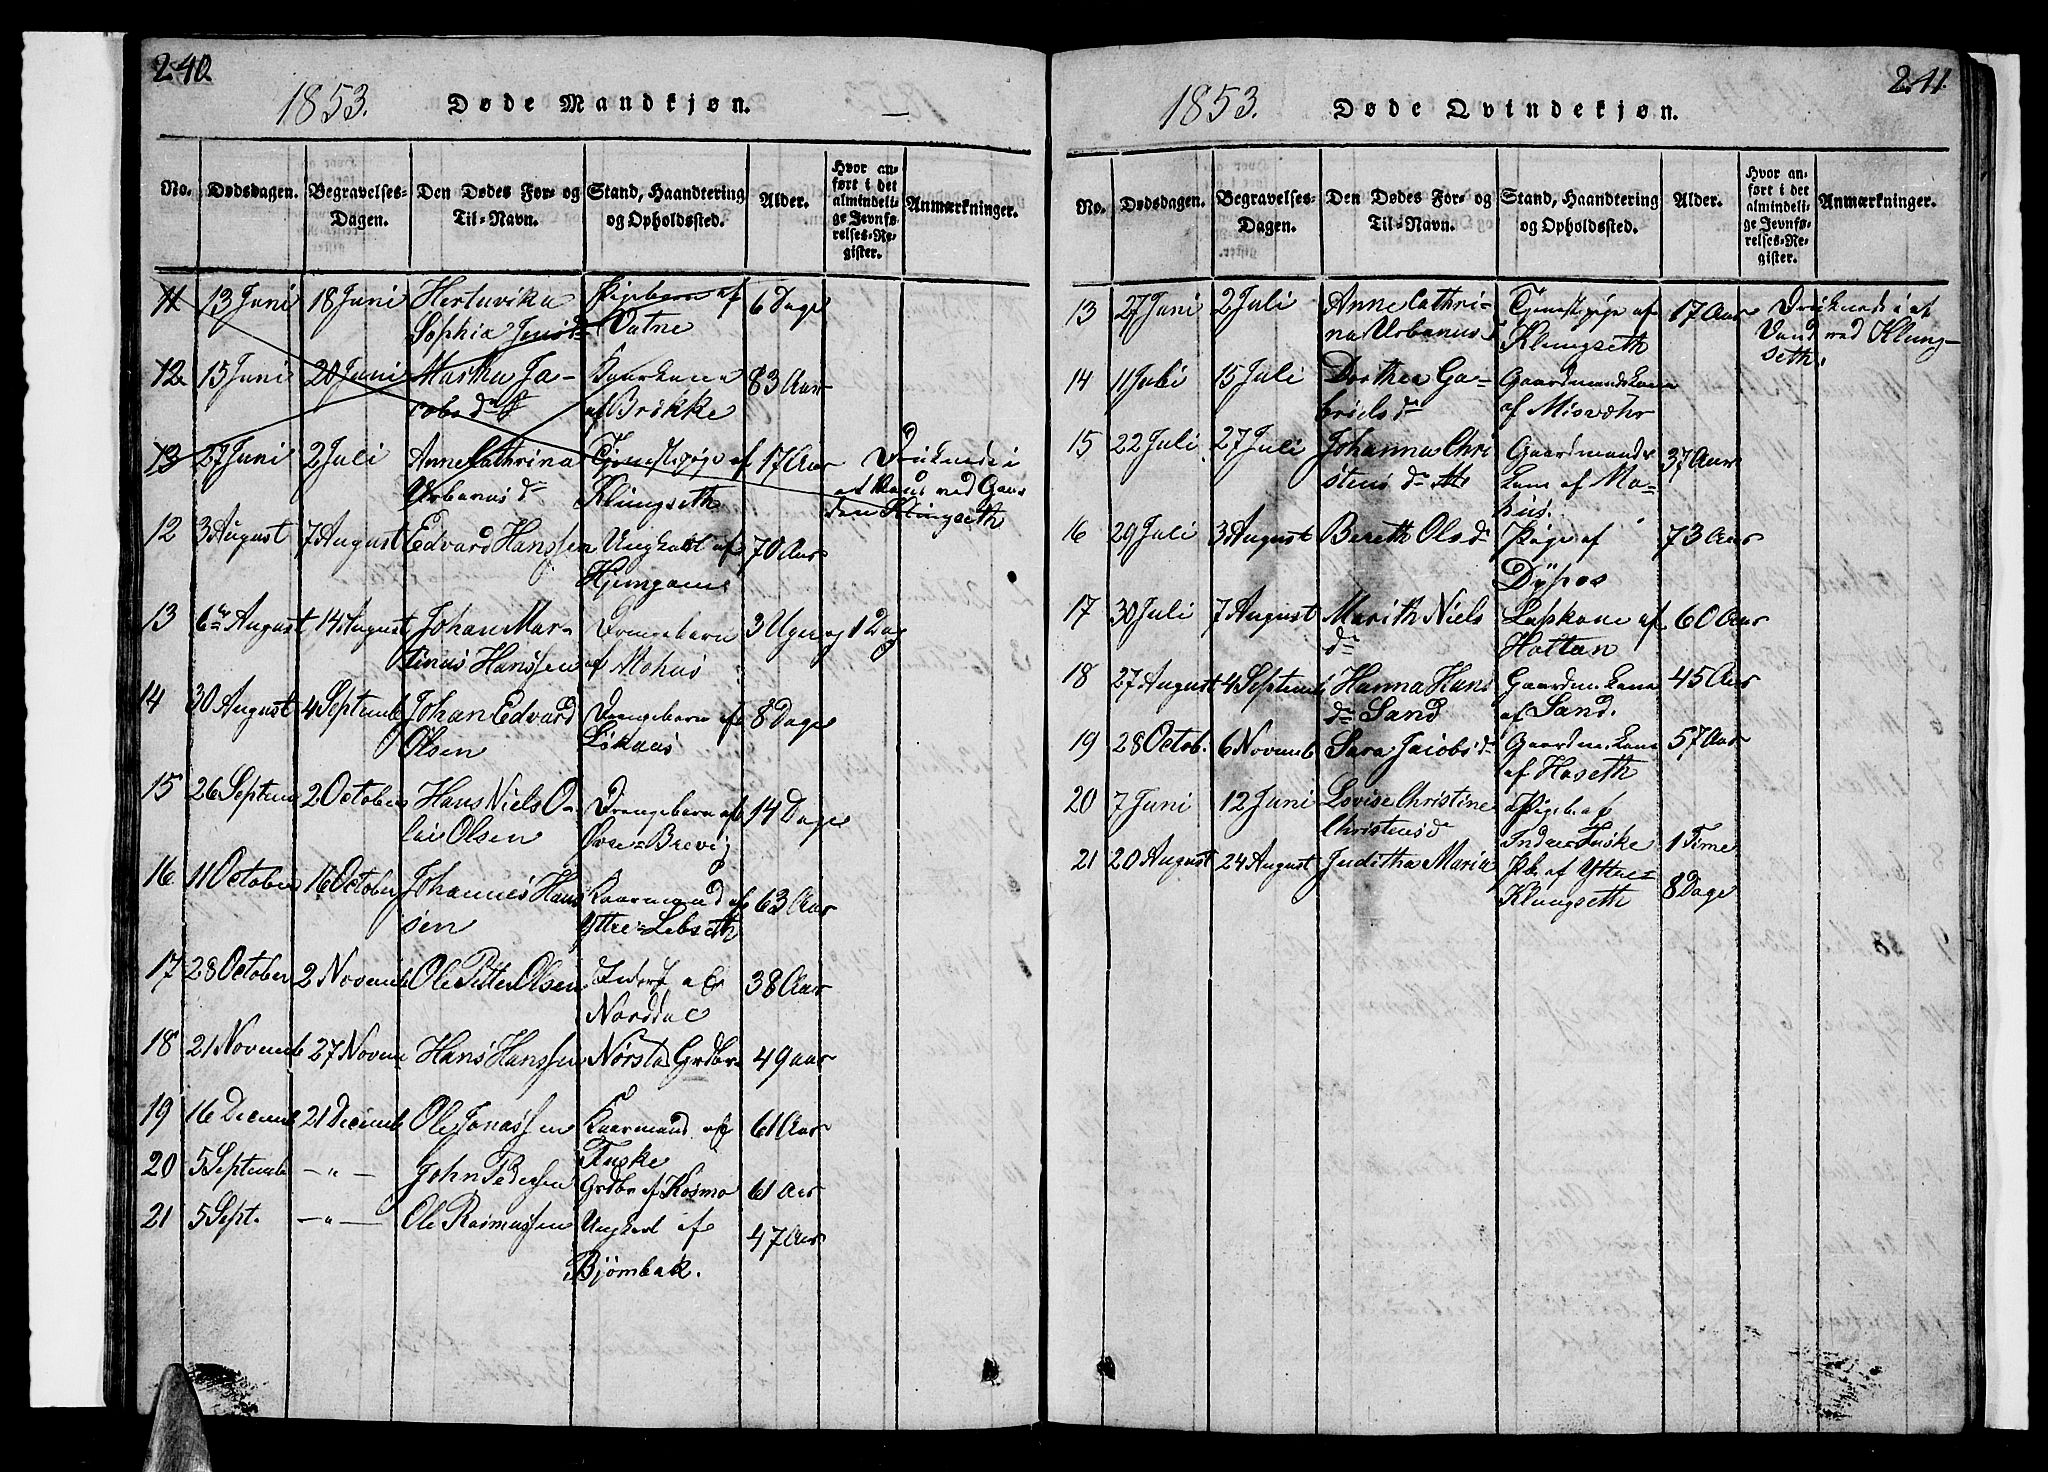 240
1853. Døde Mandkjøn.
No. Dødsdagen. Begravelses-Dagen. Den Dødes For- og Til-Navn. Stand, Haandtering og Opholdssted. Alder. Hvor anført i det almindelige Jevnførelses-Register. Anmærkninger.
11 13 Juni 18 Juni Sophia Pigebarn af 6 Dage
Vatne
12 15 Juni 20 Juni Ja- Kaarkone 83 Aar
cobsdr af Brøkke
13 27 Juni 2 Juli Anne Cathrina Tjenestpige af 17 Aar Druknede i
Urbanusdr Klungseth et Vand ved Gaar
den Klungseth
12 3 August 7 August Edvard Hanssen Ungkarl af 70 Aar
13 6te August 14 August Johan Mar- Drengebarn 3 Uger og 1 Dag
tinus Hanssen af Mohus
14 30 August 4 Septemb Johan Edvard Drengebarn af 8 Dage
Olsen Løkaas
15 26 Septem 2 October Hans Niels O- Drengebarn af 14 Dage
lai Olsen Øvre=Brevig
16 11 October 16 October Johannes Hans Kaarmand af 63 Aar
sen Yttre=Lebseth
17 28 October 2 Novemb Ole Petter Olsen Inderst 38 Aar
18 21 Novemb 27 Novem Hans Hanssen Nørsta Grdbr 49 aar
19 16 Decemb 21 Decemb Ole Jonassen Kaarmand af 61 Aar
Fuske
20 5 Septemb —"— John Pedersen Grdbr af Kosmo 61 Aar
21 5 Sept. —"— Ole Rasmussen Ungkarl af 47 Aar
Bjørnbak.
241.
1853. Døde Qvindekjøn.
No. Dødsdagen. Begravelses-Dagen. Den Dødes For- og Til-Navn. Stand, Haandtering og Opholdssted. Alder. Hvor anført i det almindelige Jevnførelses-Register. Anmærkninger.
13 27 Juni 2 Juli Anne Cathri- Tjenestpige af 17 Aar Druknede i et
na Urbanusd Klungseth Vand ved Klung-
seth.
14 11 Juli 15 Juli Dorthea Ga- Gaardmandskone
brielsdr af Misvæhr
15 22 Juli 27 Juli Johanna Chri Gaardmands 37 Aar
stensdr kone af Mo-
hus.
16 29 Juli 3 August Bereth Olsdr Pige af 73 Aar
Dypos
17 30 Juli 7 August Marith Niels Lapkone af 60 Aar
dr Hattan
18 27 August 4 Septemb Hanna Hans Gaardm. kone 45 Aar
dr Sand af Sand.
19 28 Octob. 6 Novemb Sara Jacobsdr Gaardm. kone 57 Aar
af Haseth
20 7 Juni 12 Juni Lovise Christine Pigeb. af
Christensd Indre=Fuske 1 Time
21 20 August 24 August Juditha Maria Pb. af Yttre=
Klungseth 8 Dage